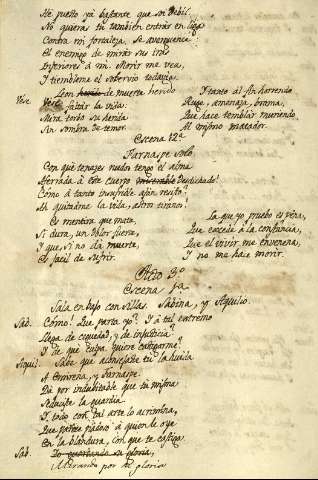 He puesto yá bastante que soi debil.
No quieras tu tambien entrar en liga
Contra mi fortaleza. Se averguence
El enemigo de mirar sus iras
Inferiores á mi. Morir me vea,
Y tiembleme el sobervio todavia.
Leon de muerte herido
Vese faltar la vida:
Mira torbo su herida
Sin sombra de temor.
Y tanto al fin horrendo
Ruge, amenaza, brama,
Que hace temblar muriendo
Al mismo matador.
Vase.
Escena 12ª
Farnaspe solo
Con que tenazes nudos tengo el alma
Aterrada á este cuerpo desdichado!
Como á tanto
Ah quitadme la vida, astros tiranos!
Es mentira que mata,
Si dura, un dolor fuere,
Y que, si no dá muerte,
Es facil de sufrir.
La que yo pruebo es pena,
Que excede á la confianza,
Que el vivir me envenena,
Y no me hace morir.
Acto 3º
Escena 1ª
Sala en bajo con sillas. Sabina, y Aquilio.
Sab. Cómo! Que parta yo? Y á tal extremo
Llega de ceguedad, y de injusticia?
Y de que culpa quiere castigarme?
Aquil. Sabe que aconsejaste tú la huida
A Emirena, y Farnaspe.
Dá por indubitable que tu misma
Seduciste la guardia
Y todo con tal arte lo acrimina,
Que parece piadoso á quien le oye
En la blandura, con que te castiga.
Sab. su gloria,
por su gloria